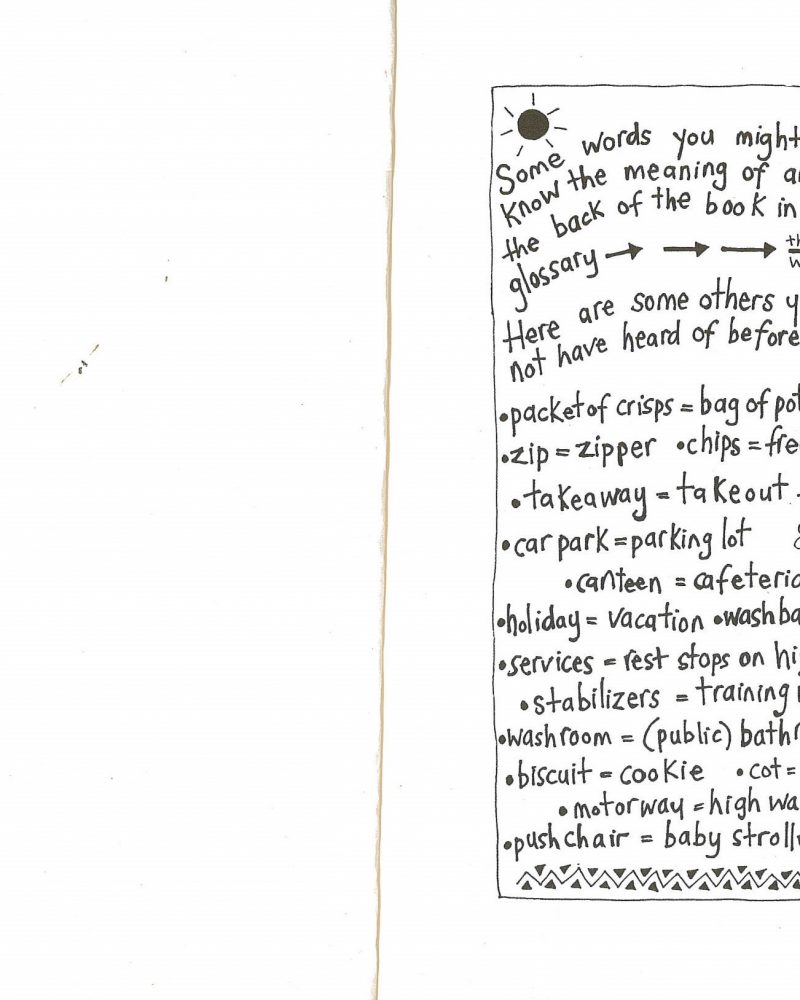 Some words you might
know the meaning of
the back of the book in
glossary
Here are some others
not have heard of before
•packet of crisps = bag of
•zip = zipper •chips =
•takeaway = takeout
•car park = parking lot
•canteen =
•holiday = vacation
•services = rest stops on
•stabilizers = training
•washroom = (public)
•biscuit = cookie •cot =
•motorway =
•pushchair = baby